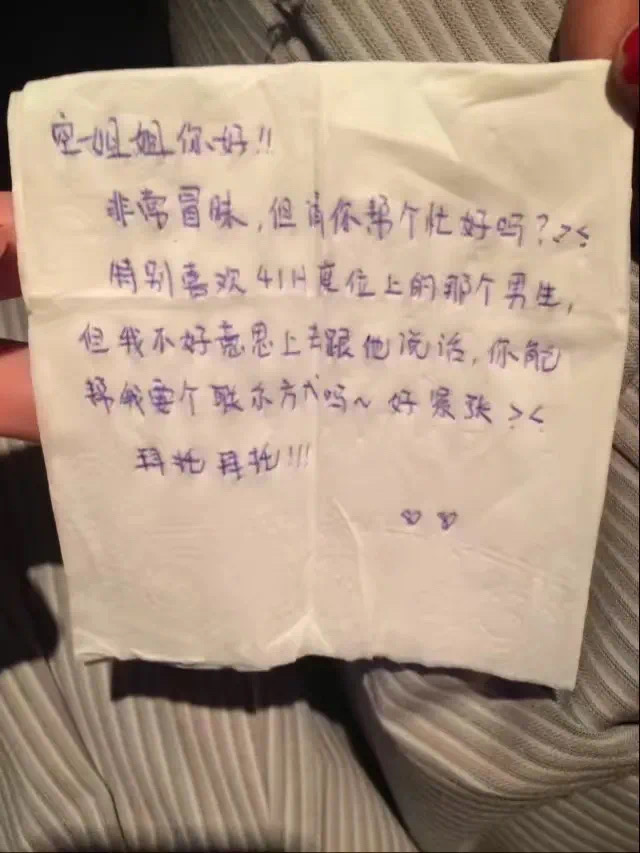 空姐姐你好!!
非常冒昧,但请你帮个忙好吗?><
特别喜欢41H座位上的那个男生,
但我不好意思上去跟他说话,你能
帮我要个联系方式吗~好紧张><
拜托拜托!!!